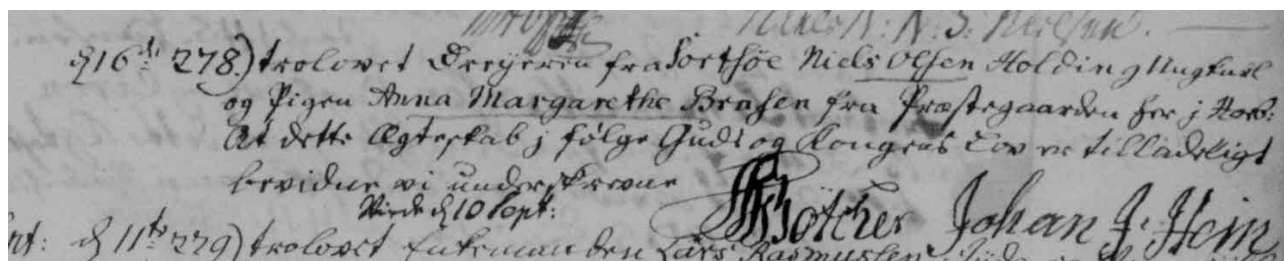 d 16de 278.) trolovet Dreyeren fra Sortsøe Niels Olsen Holding Ungkarl
og Pigen Anna Margarethe Brasen fra Præstegaarden her j Norb:
At dette Ægteskab j følge Guds og Kongens Lov er tilladeligt
bevidne vi underskrevne
Viede d 10 Sept:
Bötcher Johan J. Hein
d 11te 279) trolovet Enkemanden Lars Rasmussen